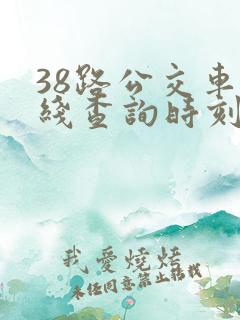 38路公交車
綫查詢時刻
我愛燒烤
未经同意禁止转载